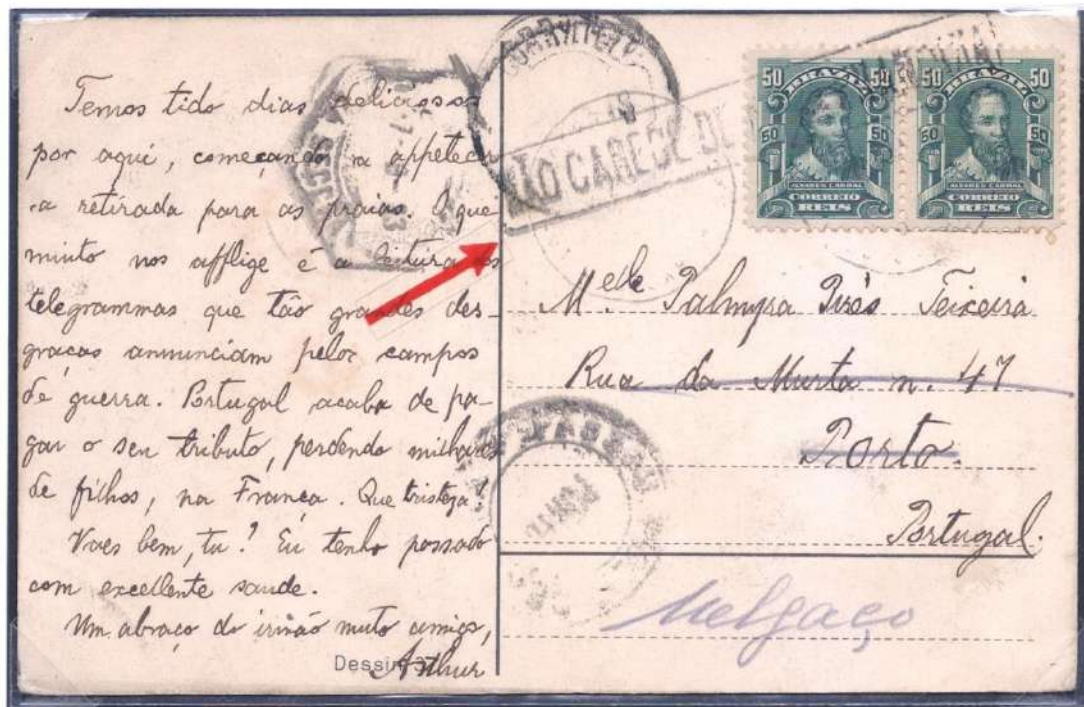 Temos tido dias deliciosos
por aqui, começando a appetecer
a retirada para as praias. O que
muito nos afflige é a leitura dos
telegrammas que tão grandes des-
graças annunciam pelos campos
de guerra. Portugal acaba de pa-
gar o seu tributo, perdendo milhares
de filhos, na França. Que tristeza!
Vaes bem, tu? Eu tenho passado
com excellente saude.
Um abraço do irmão muto amigo,
Arthur
Dessin 37
NÃO CARECE DE
50 BRAZIL 50
50 50
ALVARES CABRAL
CORREIO
REIS
50 BRAZIL 50
50 50
ALVARES CABRAL
CORREIO
REIS
Melle Palmyra Pirés Teixeira
Rua da Murta n. 47
Porto.
Portugal.
Melgaço